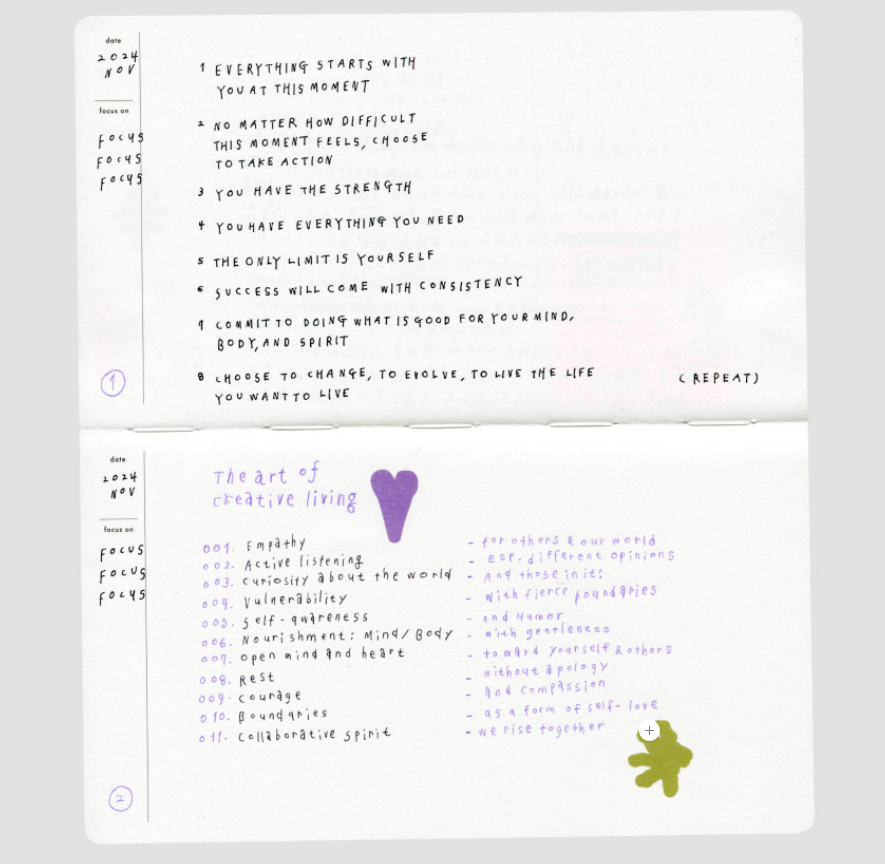 date
2024
NOV
focus on
FOCUS
FOCUS
FOCUS
1 EVERYTHING STARTS WITH
YOU AT THIS MOMENT
2 NO MATTER HOW DIFFICULT
THIS MOMENT FEELS, CHOOSE
TO TAKE ACTION
3 YOU HAVE THE STRENGTH
4 YOU HAVE EVERYTHING YOU NEED
5 THE ONLY LIMIT IS YOURSELF
6 SUCCESS WILL COME WITH CONSISTENCY
7 COMMIT TO DOING WHAT IS GOOD FOR YOUR MIND,
BODY, AND SPIRIT
8 CHOOSE TO CHANGE, TO EVOLVE, TO LIVE THE LIFE (REPEAT)
YOU WANT TO LIVE
1
date
2024
NOV
focus on
FOCUS
FOCUS
FOCUS
The art of
creative living
001. Empathy - for others & our world
002. Active listening - ESP. different opinions
003. Curiosity about the world - And those in it!
004. Vulnerability - With fierce boundaries
005. Self-awareness - and Humor
006. Nourishment: Mind/Body - with gentleness
007. Open mind and heart - toward yourself & others
008. Rest - without apology
009. Courage - and Compassion
010. Boundaries - as a form of self-love
011. Collaborative spirit - we rise together
2